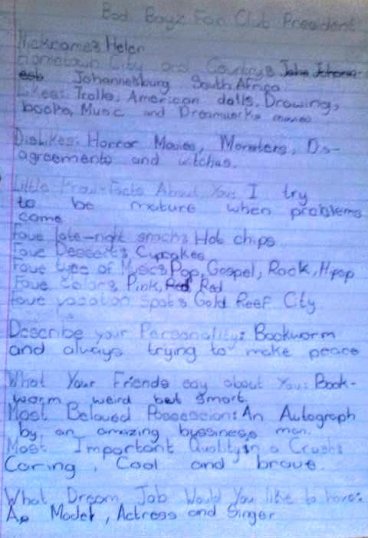 Bad Boyz Fan Club President
Nickname: Helen
Hometown City and Country:
Johannesburg South Africa
Likes: Trolls, American dolls, Drawing,
books, Music and Dreamworks movies
Dislikes: Horror Movies, Monsters, Dis-
agreements and witches.
Little Know-Facts About You: I try
to be mature when problems
come
Fave late-night snack: Hot chips
Fave Desserts: Cupcakes
Fave type of Music: Pop, Gospel, Rock, Hipop
Fave Color: Pink, Red
Fave vacation spot: Gold Reef City
Describe your Personality: Bookworm
and always trying to make peace
What Your Friends say about You: Book-
worm, weird but smart.
Most Beloved Possession: An Autograph
by an amazing byssiness man.
Most Important Quality in a Crush:
Caring, Cool and brave.
What Dream Job Would You like to have:
A Model, Actress and Singer